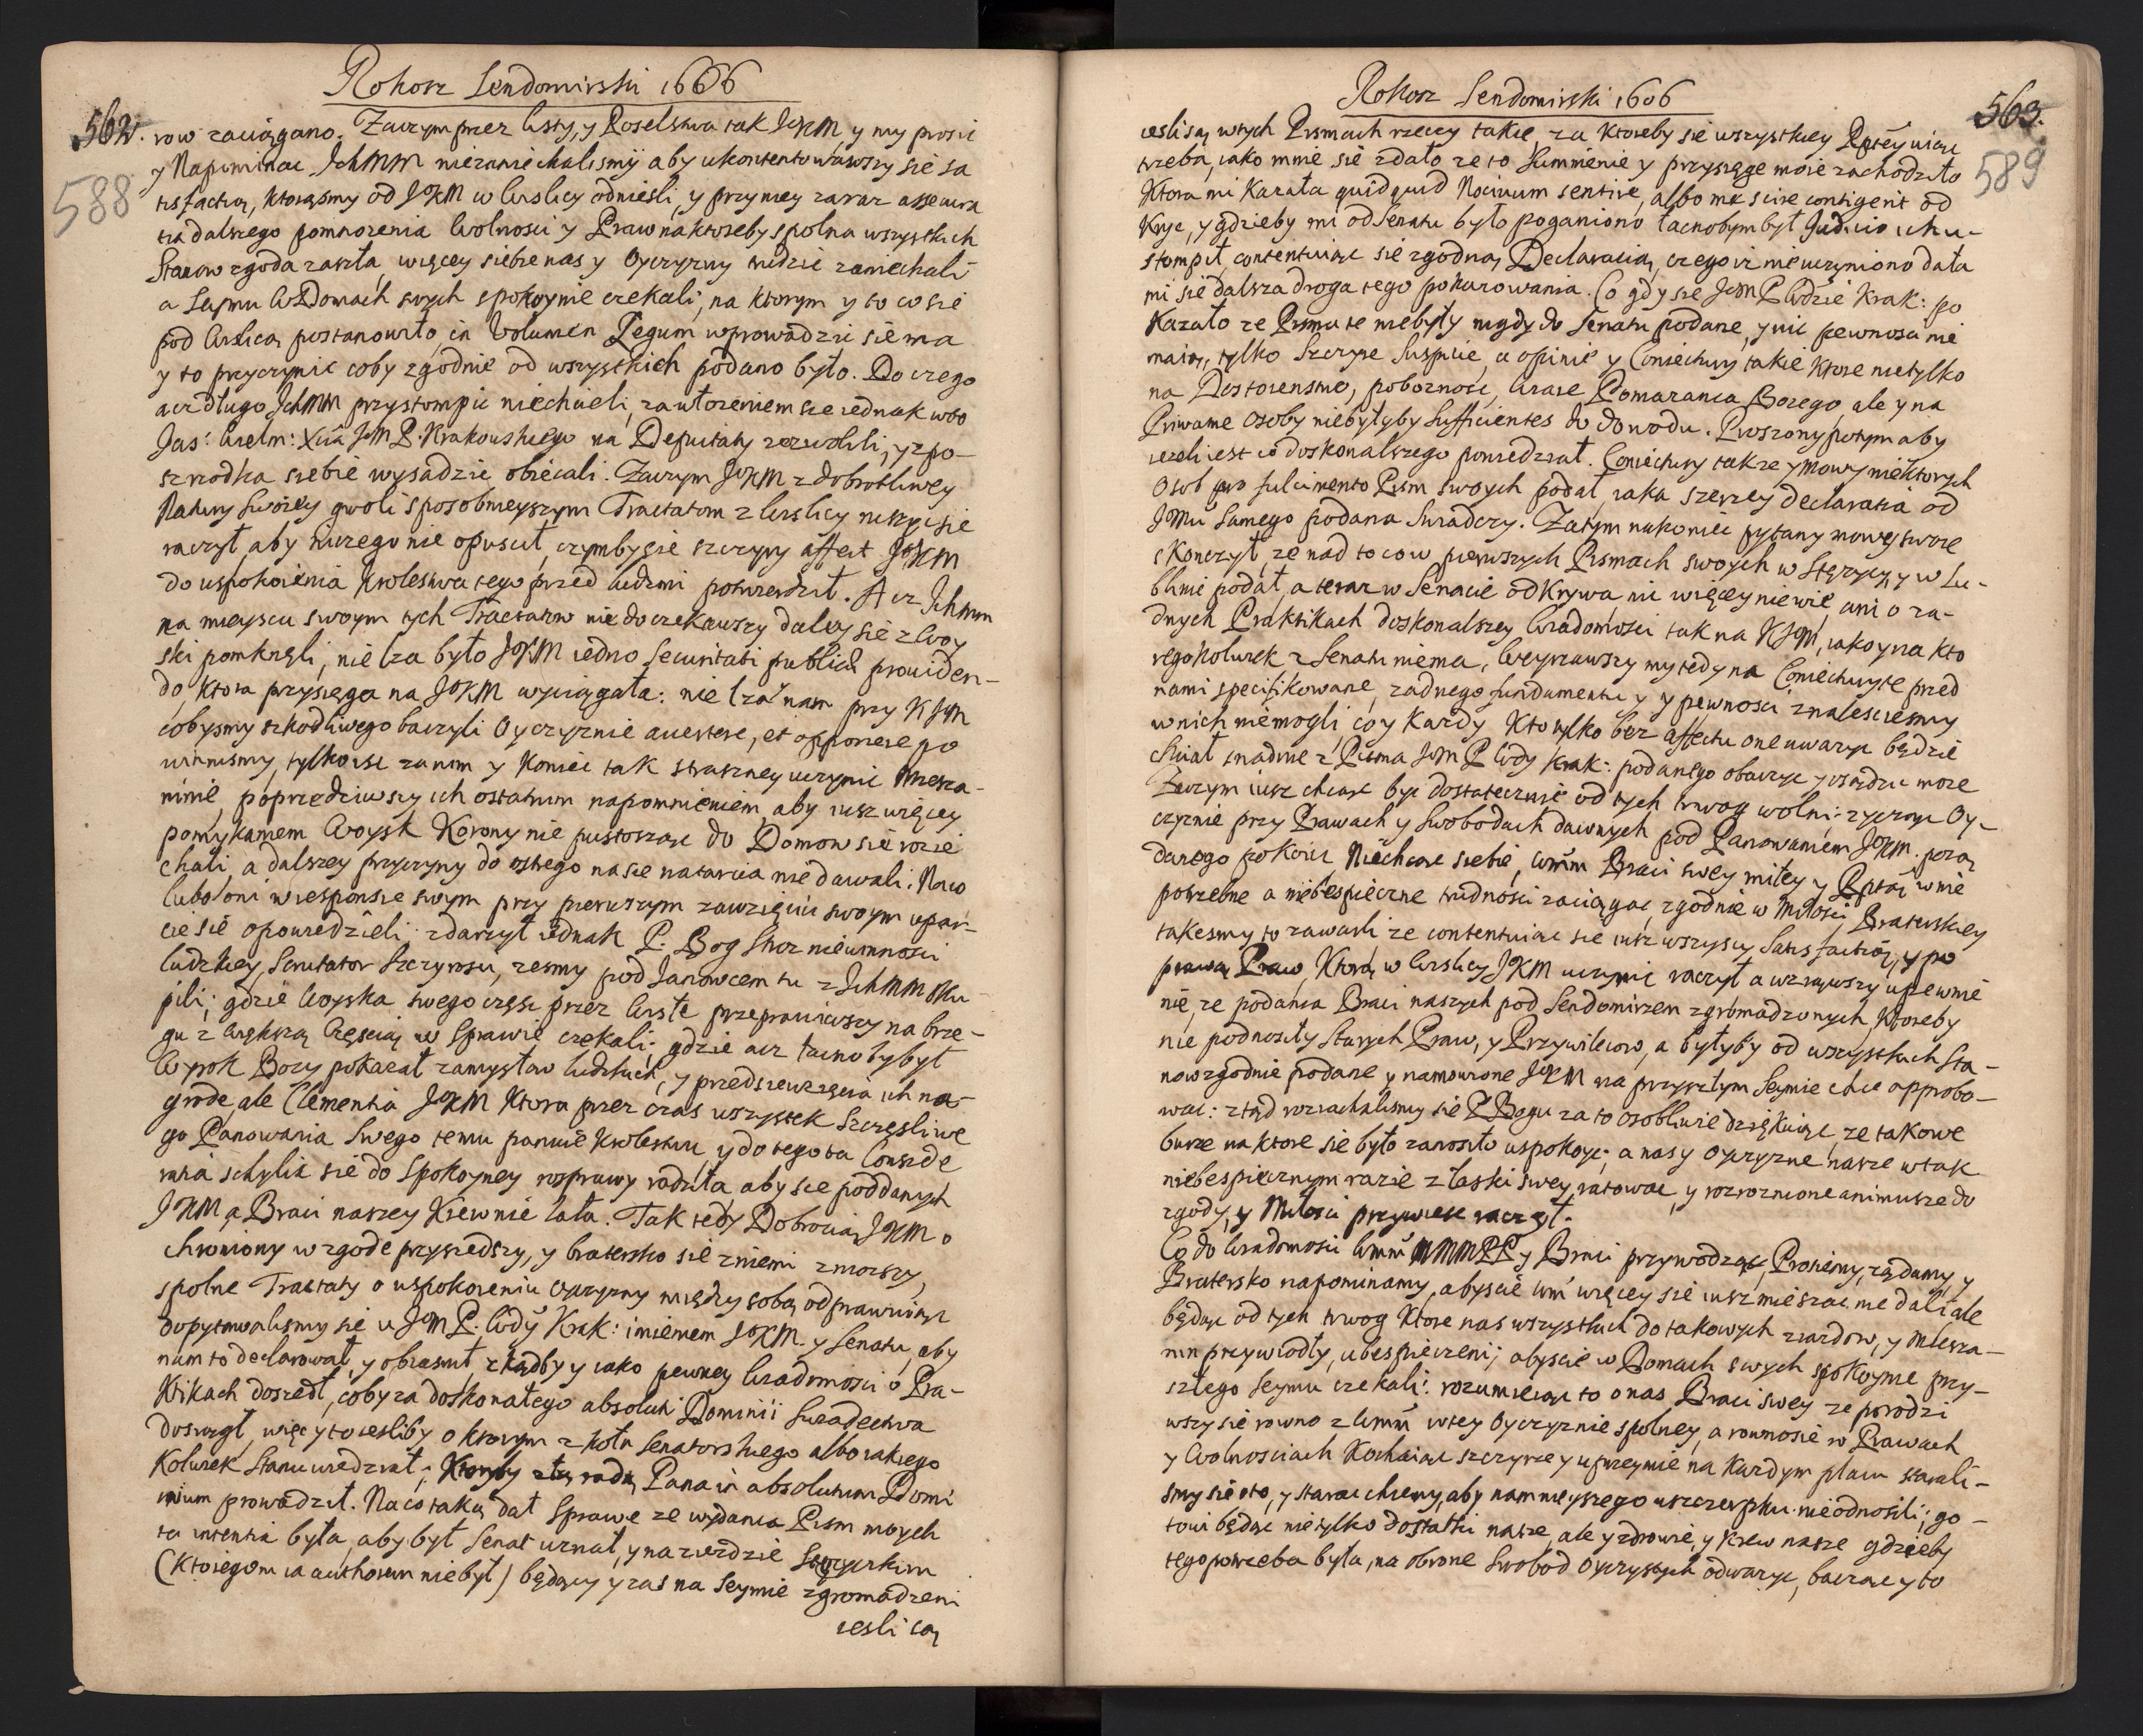 Rokosz Sendomirski 1606
562.
588
row zaciągano. Zaczym przez listy, y Poselstwa tak JKM y my prosic
y Napominac Jchmm niezaniechalismy aby ukontentowawszy się sa
tisfactią, ktorąsmy od JKM w Wislicy odniesli, y przy niey zaraz assecura
tią dalszego pomnozenia Wolnosci y Praw na ktoreby spolna wszystkich
Stanow zgoda zaszła, więcey siebie nas y Oyczyzny trudzic zaniechali
a Seymu W Domach swych spokoynie czekali, na ktorym y to co się
pod Wislicą postanowiło, in Volumen Legum wprowadzic się ma
y to przyczynic coby zgodnie od wszystkich podano było. Do czego
acz długo Jchmm przystompic niechcieli, za włozeniem sie iednak w to
Jas: Wielm: Xcia JM P. Krakowskiego na Deputaty zezwolili, y z po-
szrodka siebie wysadzic obiecali. Zaczym JKM z dobrotliwey
Natury Swoiey gwoli sposobnieyszym Tractatom z Wislicy ruszyc się
raczył, aby niczego nie opuscił, czymby się szczyry affect JKM
do uspokoienia Krolestwa tego przed ludzmi potwierdził. Acz Jchmm
na mieyscu swoym tych Tractatow nie doczekawszy daley się z Woy
ski pomknęli, nie lza było JKM iedno securitati publicæ providen-
do, ktora przysięga na JKM wyciągała: nie lza nam przy KJM
cobysmy szkodliwego baczyli Oyczyznie avertere, et opponere po
winnismy, tylkoisc za nim y koniec tak straszney uczynic miesza-
ninie, poprzedziwszy ich ostatnim napomnieniem, aby iusz więcey
pomykaniem Woysk Korony nie pustosząc do Domow się rozie
chali, a dalszey przyczyny do ostrego na się natarcia nie dawali. Na co
lubo oni w responsie swym przy pierwszym zawzięciu swoym upar-
cie się opowiedzieli: zdarzył iednak P. Bog Stroz niewinnosci
ludzkiey, Scrutator szczyrosci, zesmy pod Janowcem tu z Jchmm sku
pili; gdzie Woyska swego częsc przez Wisłe przeprawiwszy na brze-
gu z większą częscią w sprawie czekali; gdzie acz łacno bybył
Wyrok Bozy pokazał zamysłow ludzkich, y przedsiewzięcia ich na-
grode, ale Clementia JKM ktora przez czas wszystek szczęsliwe
go Panowania Swego temu panuie Krolestwu, y do tego ta Conside
ratia schylic się do spokoyney rosprawy radziła, aby sie poddanych
JKM a Braci naszey Krew nie lała. Tak tedy Dobrocią JKM o
chroniony w zgode przyszedszy, y bratersko się z niemi zniozszy,
spolne Tractaty o uspokoieniu Oyczyzny między sobą odprawuiąc
dopytawalismy się u JM P. Wdy Krak: imieniem JKM. y Senatu, aby
nam to declarował, y obiasnił, z kądby y iako pewney Wiadomosci o Pra-
ktikach doszedł, coby za doskonałego absoluti Dominii swiadectwa
dosiągł, więc y to iesliby o ktorym z koła Senatorskiego albo iakiego
kolwiek Stanu wiedział; ktoryby złą radą Pana in absolutum Domi
nium prowadził. Na co taką dał sprawe ze wydania Pism moych
ta intentia była, aby był Senat uznał, y na ziezdzie Stęzyckim
(ktoregom ia authorem niebył) będący y zas na Seymie zgromadzeni
iesli są

Rokosz Sendomirski 1606
563.
589
iesli są w tych Pismach rzeczy takie, za ktoreby się wszystkiey Rptey uiąc
trzeba, iako mnie się zdało ze to Sumnienie y przysięge moie zachodziło
ktora mi kazała quidquid Nocivum sentire, albo me scire contigerit od
kryc, y gdzieby mi od Senatu było poganiono łacnobym był Judicio ich u-
stompił, contentuiąc się zgodną Declaracią, czego iz nie uczyniono dała
mi się dalsza droga tego pokazowania. Co gdy się JM P Wdzie Krak: po
kazało ze Pisma te niebyły nigdy do Senatu podane, y nic pewnosci nie
maią, tylko Szczyre suspicie, a opinie y Coniectury takie ktore nie tylko
na Dostoienstwo, poboznosc, Wiare Pomazanca Bozego, ale y na
Priwatne osoby niebyłyby sufficientes do dowodu. Proszony potym aby
iezeli iest co doskonalszego powiedział. Coniectury takze y mowy niektorych
Osob pro fulcimento Pism swoych podał, iaka szerzey declaratia od
JMci samego podana Swiadczy. Zatym nakoniec pytany mowę swoie
skonczył, ze nad to co w pierwszych Pismach swoych w Stęzycy, y w Lu-
blinie podał, a teraz w Senacie odkrywa nic więcey niewie, ani o za-
dnych Praktikach doskonalszey Wiadomosci tak na KJM, iako y na kto
regokolwiek z Senatu niema. Weyzrawszy my tedy na Coniectury te przed
nami specifikowane, zadnego fundamentu y y pewnosci znalesciesmy
w nich niemogli, co y kazdy kto tylko bez affectu one uwazyc będzie
chciał snadnie z Pisma JM P Wdy Krak: podanego obaczyc y osądzic moze
Zaczym iusz chcąc byc dostatecznie od tych trwog wolni: zyczyc Oy-
czyznie przy Prawach y Swobodach dawnych pod Panowaniem JKM. poza
danego pokoiu, Niechcąc siebie, Wmm Braci swey miłey y Rptą w nie
potrzebne a niebespieczne trudnosci zaciągac, zgodnie w Miłosci Braterskiey
takesmy to zawarli ze contentuiąc się iusz wszyscy satisfactią, y po
prawą Praw, ktorą w Wislicy JKM uczynic raczył a wziąwszy upewnie
nie, ze podania Braci naszych pod Sendomirzem zgromadzonych, ktoreby
nie podnosiły Starych Praw, y Przywileiow, a byłyby od wszystkich Sta-
now zgodnie podane y namowione JKM na przyszłym Seymie chce approbo-
wac: ztąd roziachalismy się P Bogu za to osobliwie dziękuiąc, ze takowe
burze na ktore się było zanosiło uspokoyc, a nas y Oyczyzne nasze w tak
niebespiecznym razie z łaski swey ratowac, y rozroznione animusze do
zgody, y Miłosci przywiesc raczył.
Co do Wiadomosci Wmm MMM PP y Braci przywodząc, Prosiemy, ządamy y
Bratersko napominamy, abyscie wm więcey się iusz mieszac nie dali ale
będąc od tych trwog ktore nas wszystkich do takowych ziazdow, y Miesza-
nin przywiodły, ubespieczeni; abyscie w Domach swych spokoynie przy-
szłego Seymu czekali: rozumieiąc to o nas Braci swey ze porodzi
wszy się rowno z Wmm w tey Oyczyznie spolney, a rownosie w Prawach
y Wolnosciach kochaiąc szczyrze y uprzeymie na kazdym placu starali-
smy się o to, y starac chcemy, aby nam nieyszego uszczerpku nieodnosili; go-
towi będąc nie tylko dostatki nasze, ale y zdrowie, y krew nasze gdzieby
tego potrzeba była, na obrone Swobod Oyczystych odwazyc, bacząc y to